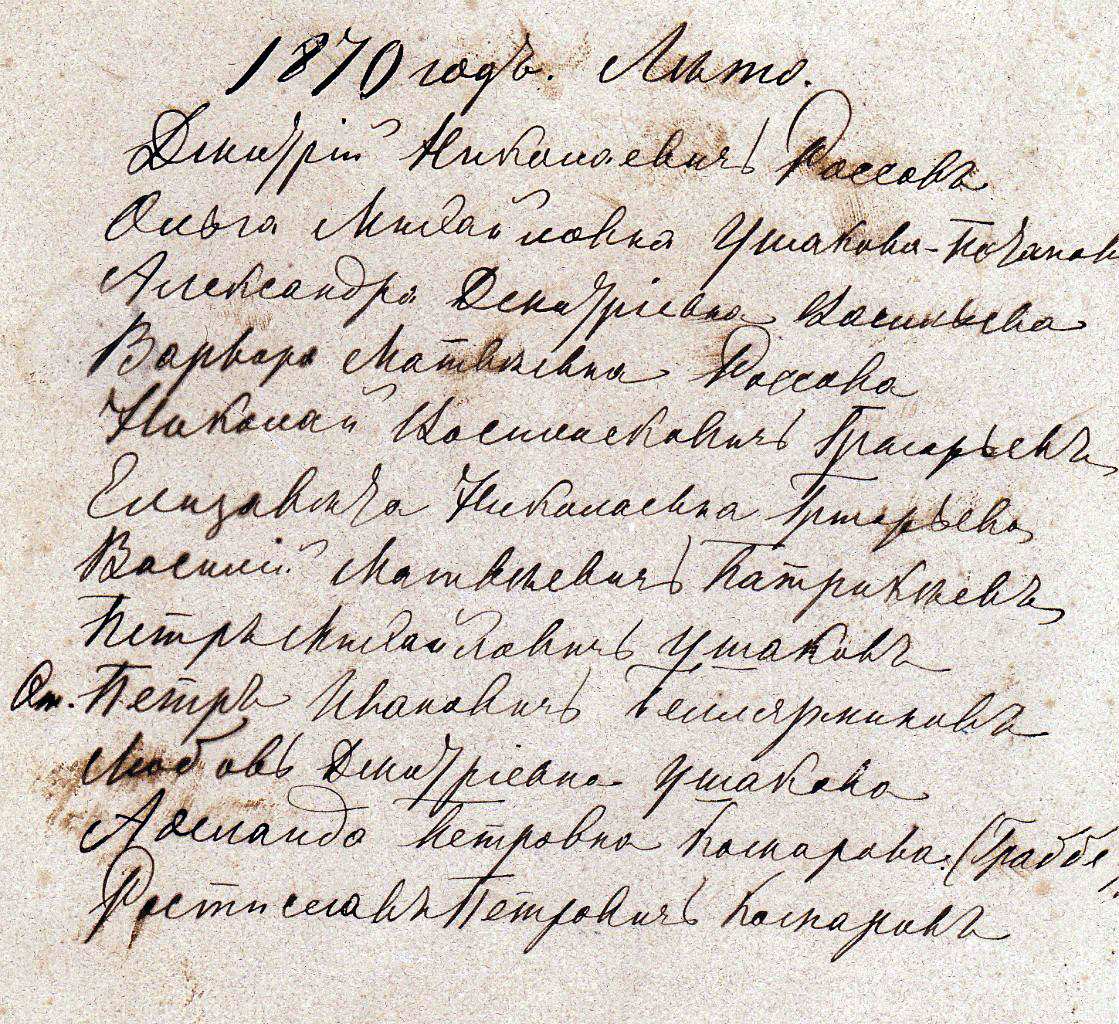 1870 годъ. Лѣто.
Дмитрій Николаевичъ Россовъ
Ольга Михайловна Ушакова-
Александра Дмитріевна Васильева
Варвара Матвѣевна Россова
Николай Григорьевъ
Елизавета Николаевна Григорьева
Василій Матвѣевичъ Патрикѣевъ
Петръ Михайловичъ Ушаковъ
От. Петръ Ивановичъ
Любовь Дмитріевна Ушакова
Петровна Комарова. (Граббе)
Ростиславъ Петровичъ Комаровъ